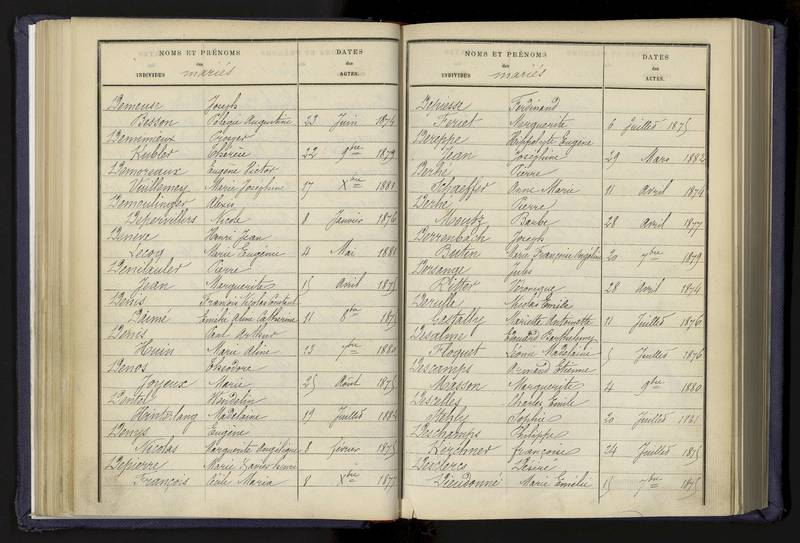 NOMS ET PRÉNOMS DATES
des des
INDIVIDUS mariés ACTES.
Demeuse Joseph
Besson Pélagie Augustine 23 Juin 1874
Prosper
Kubler Thérèse 22 9bre 1879
Demoreaux Eugène Victor
Vuillemey Marie Joséphine 17 Xbre 1881
Alexis
Depervillers Nicole 8 Janvier 1876
Denève Henri Jean
Lecoq Marie Eugénie 4 Mai 1881
Pierre
Jean Marguerite 15 Avril 1875
Denis François Nicolas Constant
Emélie Aline Catherine 11 8bre 1875
Denis Paul Arthur
Huin Marie Aline 23 7bre 1880
Denos Théodore
Joyeux Marie 25 Août 1875
Dentel Wendelin
Hinterlang Madelaine 19 Juillet 1882
Denys Eugène
Nicolas Marguerite Angélique 8 février 1875
Depierre Marie Xavier
François Maria 8 Xbre 1877
NOMS ET PRÉNOMS DATES
des des
INDIVIDUS mariés ACTES.
Depiesse Ferdinand
Feriet Marguerite 6 Juillet 1875
Dereppe Hippolyte Eugène
Jean Joséphine 29 Mars 1882
Derhé Pierre
Schaeffer Anne Marie 11 avril 1874
Derhé Pierre
Barbe 28 avril 1877
Derrenbach Joseph
Butin Marie Françoise 20 7bre 1879
Dersange Jules
Ritter Véronique 28 Avril 1874
Nicolas Emile
Castalby Mariette Antoinette 11 Juillet 1876
Edouard Barthelemy
Floquet Léonie Madelaine 5 Juillet 1876
Descamps Armand Etienne
Masson Marguerite 4 9bre 1880
Descelles Charles Emile
Sophie 20 Juillet 1881
Deschamps Philippe
Kirchner françoise 24 Juillet 1875
Desclercs Désiré
Dieudonné Marie Emélie 15 7bre 1875